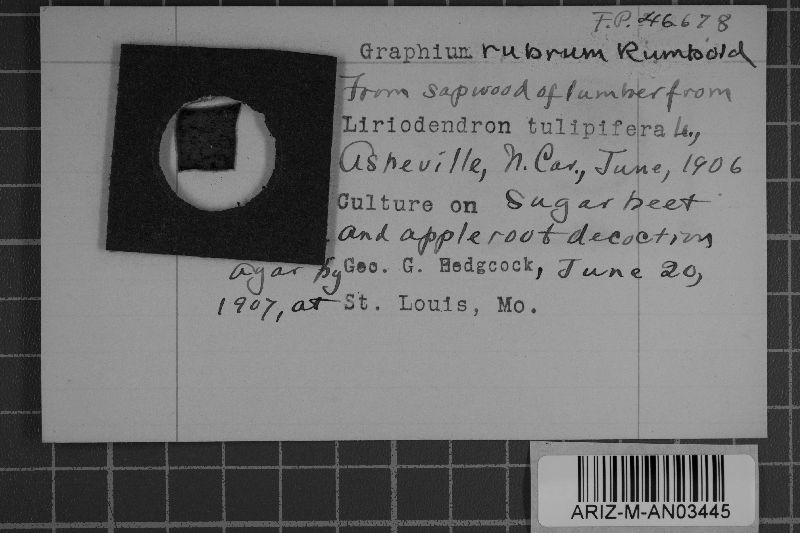 F.P. 46678
Graphium rubrum Rumbold
From sapwood of lumber from
Liriodendron tulipifera L.,
Asheville, N. Car., June, 1906
Culture on Sugar beet
and apple root decoction
agar by Geo. G. Hedgcock, June 20,
1907, at St. Louis, Mo.
ARIZ-M-AN03445